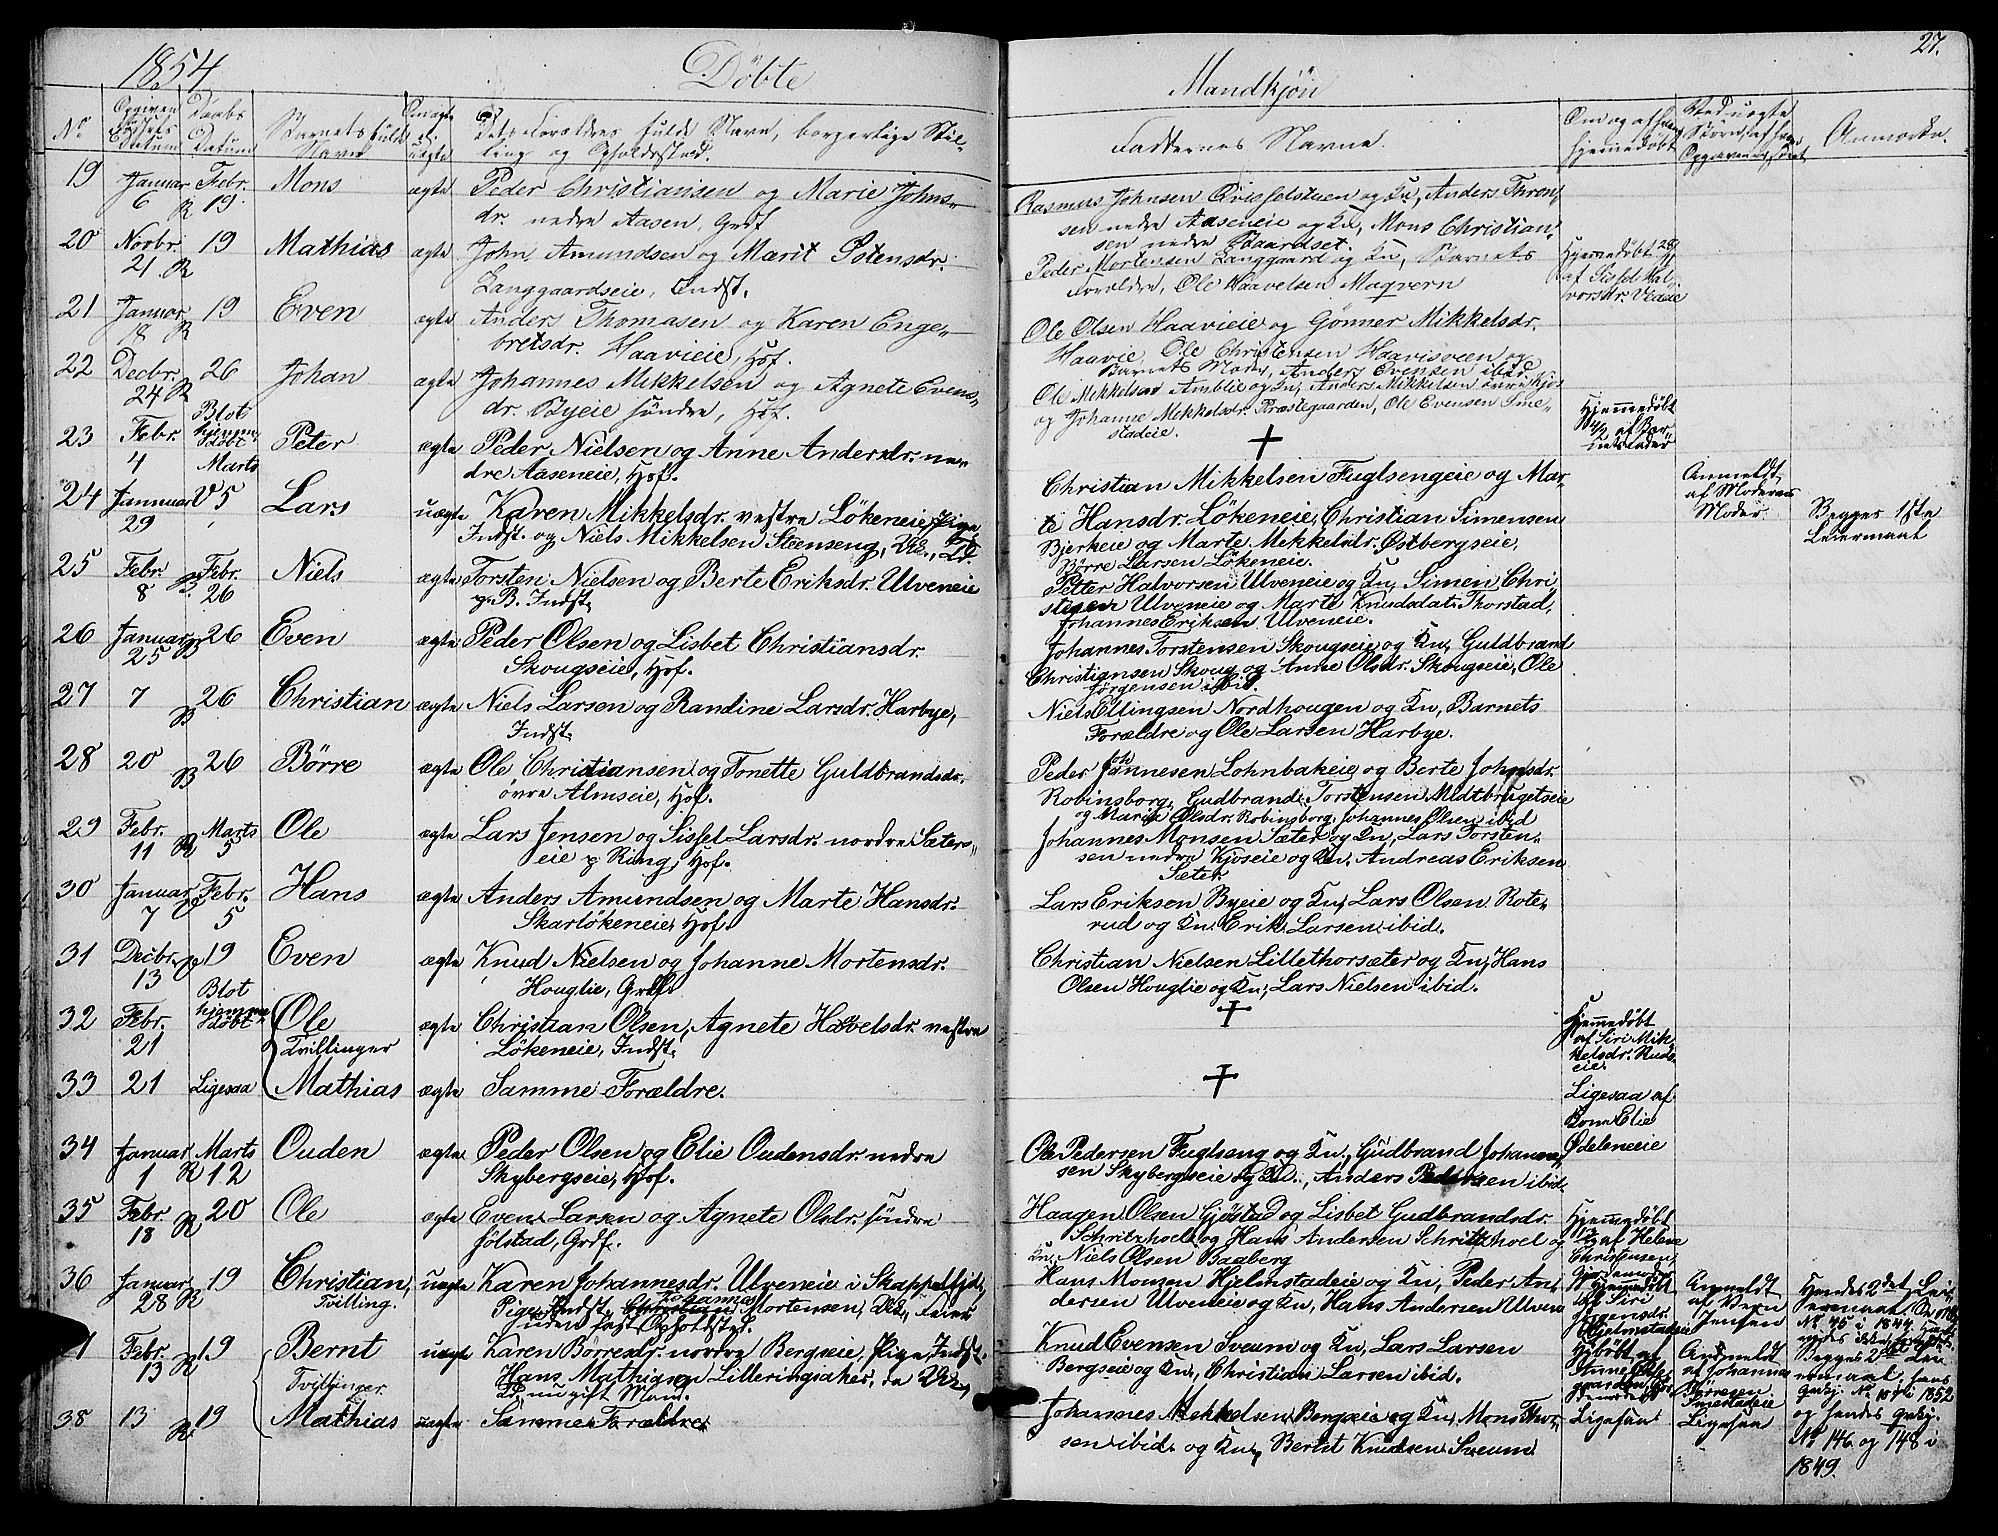 1854 Döbte Mandkjön 27.
No Opgiven Födsels Datum Daabs Datum Barnets fulde Navn Om ægte el. uægte Dets Forældres fulde Navn, borgerlige Stilling og Opholdssted. Faddernes Navne. Om og af hvem hjemmedöbt Anmærkn.
19 Januar 6 R Febr. 19 Mons ægte Peder Christiansen og Marie Johns-
dr. nedre Aasen, Grdf.
Rasmus Johnsen Qvisselstuen og Kn, Anders Thron-
sen nedre Aaseneie og Kn, Mons Christian-
sen nedre
20 Novbr. 21 R 19 Mathias ægte John Amundsen og Marit Ostensdr.
Langgaardseie, Indst.
Peder Mortensen Langgaard og Kn, Barnets
Forældre, Ole Haavelsen Maqvern
Hjemmedöbt
af Sissel Hal-
vorsdr.
21 Januar 18 R 19 Even ægte Anders Thomasen og Karen Enge-
bretsdr. Haavieie, Hof.
Ole Olsen Haavieie og Gönner Mikkelsdr.
Haavie, Ole Christensen Haavisveen og
Barnets Moder, Anders Evensen ibid.
22 Decbr. 24 R 26 Johan ægte Johannes Mikkelsen og Agnete Evens-
dr. Byeie söndre, Hof.
Ole Mikkelsen Amblie og Kn, Anders Mikkelsen
og Johanne Mikkelsdr. Præstegaarden, Ole Evensen Sme-
stadeie.
23 Febr. 4 Blot hjemme- döbt Peter ægte Peder Nielsen og Anne Andersdr. ne-
dre Aaseneie, Hof.
Hjemmedöbt
af Bar-
nets Fader
24 Januar 29 Marts 5 Lars uægte Karen Mikkelsdr. vestre Lökeneie, Pige
Indst. og Niels Mikkelsen Steenseng,
Christian Mikkelsen Fuglsengeie og Mar-
te Hansdr. Lökeneie, Christian Simensen
Bjerkeie og Marte Mikkelsdr. Östbergseie,
Börre Larsen Lökeneie.
Anmeldt
af Moderens
Moder.
Begges 1ste
Leiermaal
25 Febr. 8 Febr. 26 Niels ægte Torsten Nielsen og Berte Eriksdr. Ulveneie
p. B. Indst.
Petter Halvorsen Ulveneie og Kn, Simen Chri-
stensen Ulveneie og Marte Knudsdat. Thorstad,
Johannes Eriksen Ulveneie.
26 Januar 25 26 Even ægte Peder Olsen og Lisbet Christiansdr.
Skougseie, Hof.
Johannes Torstensen Skougseie og Kn, Guldbrand
Christiansen Skoug og Anne Olsdr. Skougseie, Ole
Jörgensen ibid.
27 7 26 Christian ægte Niels Larsen og Randine Larsdr. Harbye,
Indst.
Niels Ellingsen Nordhougen og Kn, Barnets
Forældre og Ole Larsen Harbye.
28 20 26 Börre ægte Ole Christiansen og Tonette Guldbrandsdr.
övre Almseie, Hof.
Peder Johannesen Lohnbakeie og Berte Johnsdr.
Robinsborg, Gudbrand Torstensen Midtbrugetseie
og Marin Olsdr. Robinsborg, Johannes Olsen ibid
29 Febr. 11 R Marts 5 Ole ægte Lars Jensen og Sissel Larsdr. nordre Sæters-
eie p Ring, Hof.
Johannes Monsen Sæter og Kn, Lars Torsten-
sen nedre Kjoseie og Kn, Andreas Eriksen
Sæter.
30 Januar 7 Febr. 5 Hans ægte Anders Amundsen og Marte Hansdr.
Skartlökeneie, Hof.
Lars Erikson Byeie og Kn, Lars Olsen Rote-
rud og Kn. Erik Larsen ibid.
31 Decbr. 13 19 Even ægte Knud Nielsen og Johanne Mortensdr.
Houglie, Grdf.
Christian Nielsen Lillethorsæter og Kn, Hans
Olsen Houglie og Kn, Lars Nielsen ibid.
32 Febr. 21 Blot hjemme- döbt Ole ægte Christian Olsen, Agnete Havelsdr. vestre
Tvillinger
Lökeneie, Indst.
Hjemmedöbt
af Siri Mik-
kelsdr. Ruds-
eie.
33 21 Ligesaa Mathias ægte Samme Forældre.
Ligesaa af
Kone Elie
Ödeleneie
34 Januar 1 R Marts 12 Ouden ægte Peder Olsen og Elie Oudensdr. nedre
Skybergseie, Hof.
Ole Pedersen Fuglseng og Kn, Gudbrand Johannes-
sen Skybergseie og Kn., Anders Pedersen ibid.
35 Febr. 18 R 20 Ole ægte Even Larsen og Agnete Olsdr. söndre
Jölstad, Grdf.
Haagen Olsen Gjöstad og Lisbet Gudbrandsdr.
Schritzhoel og Hans Andersen Schritzhoel og
Kn, Niels Olsen Baaberg
Hjemmedöbt
af Helene
Christensen,
Gjordemoder
36 Januar 28 R 19 Christian, uægte Karen Johannesdr. Ulveneie i Skappelfjd,
Tvilling.
Pige, Indst, Johannes Mortensen,
uden fast Opholdsted.
Hans Monsen Hjelmstadeie og Kn, Peder An-
dersen Ulveneie og Kn, Hans Andersen Ulven
Hjemmedöbt
af Siri
Hjelmstadeie
Anmeldt
af Bern
Jensen
Hendes 2det Lei-
ermaal,
No 45 i 1844.
Febr. 13 R 19 Bernt uægte Karen Börresdr. nordre Bergseie, Pige, Indst.
Tvillinger
Hans Mathiasen Lilleringsaker,
ugift Mand.
Knud Evensen Sveum og Kn, Lars Larsen
Bergseie og Kn, Christian Larsen ibid.
Anmeldt
af Johannes
Börresen
Smestadeie
Begges 2det Lei-
ermaal, hans
i 1852
38 13 R 19 Mathias uægte Samme Forældre
Johannes Mikkelsen Bergseie og Kn, Mons Thor-
sen ibid. og Kn, Bertel Knudsen Sveum
Ligesaa Ligesaa
og hendes
No 146 og 148 i
1849.